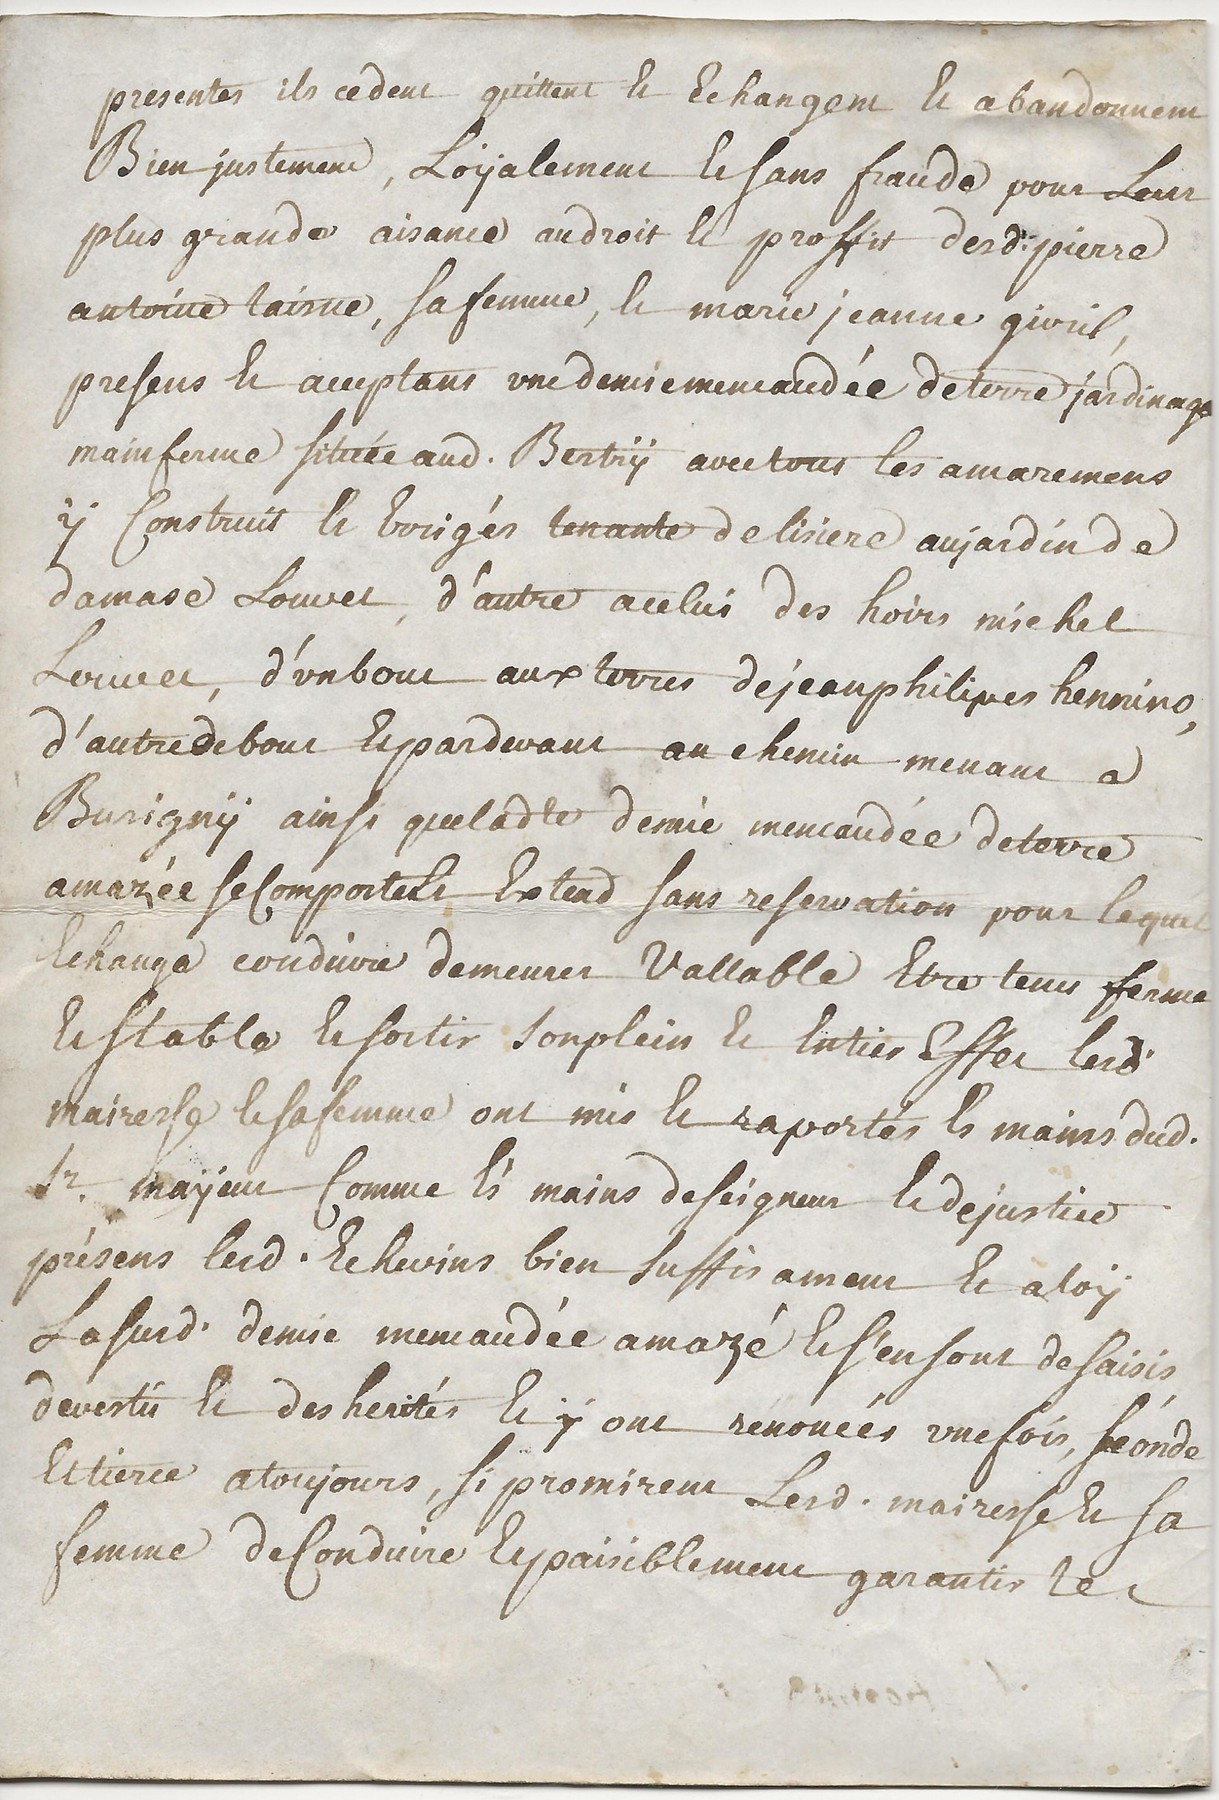 presentes ils cedent quittent et Echangent et abandonnent
Bien justement, Loÿalement et sans fraude pour Leur
plus grande aisance au droit et proffit desd. pierre
antoine taisne, sa femme, et marie jeanne
presens et acceptans une demie mencaudée de terre jardinage
mainferme située aud. Bertrÿ avec tous les amazemens
ÿ Construit et Erigés tenante de lisiere au jardin de
damase Louvet, d'autre a celui des hoirs michel
Louvet, d'un bout aux terres de jean philipes hennino,
d'autre de bout et pardevant au chemin menant a
Busignÿ ainsi que ladte demie mencaudée de terre
amazée se Comporte et Extend sans reservation pour lequel
Echange conduire demeurer Vallable Etre tenu ferme
et stable et sortir son plein et Entier Effet lesd.
mairesse et sa femme ont mis et raportés Es mains dud.
Sr. maÿeur Comme Es mains de seigneur et de justice
présens lesd. Echevins bien suffisament et a loÿ
La susd. demie mencaudée amazé et s'en sont desaisis
devestis et desherités et ÿ ont renoncés une fois, seconde
Et tierce a toujours, si promirent Lesd. mairesse et sa
femme de Conduire et paisiblement garantir let